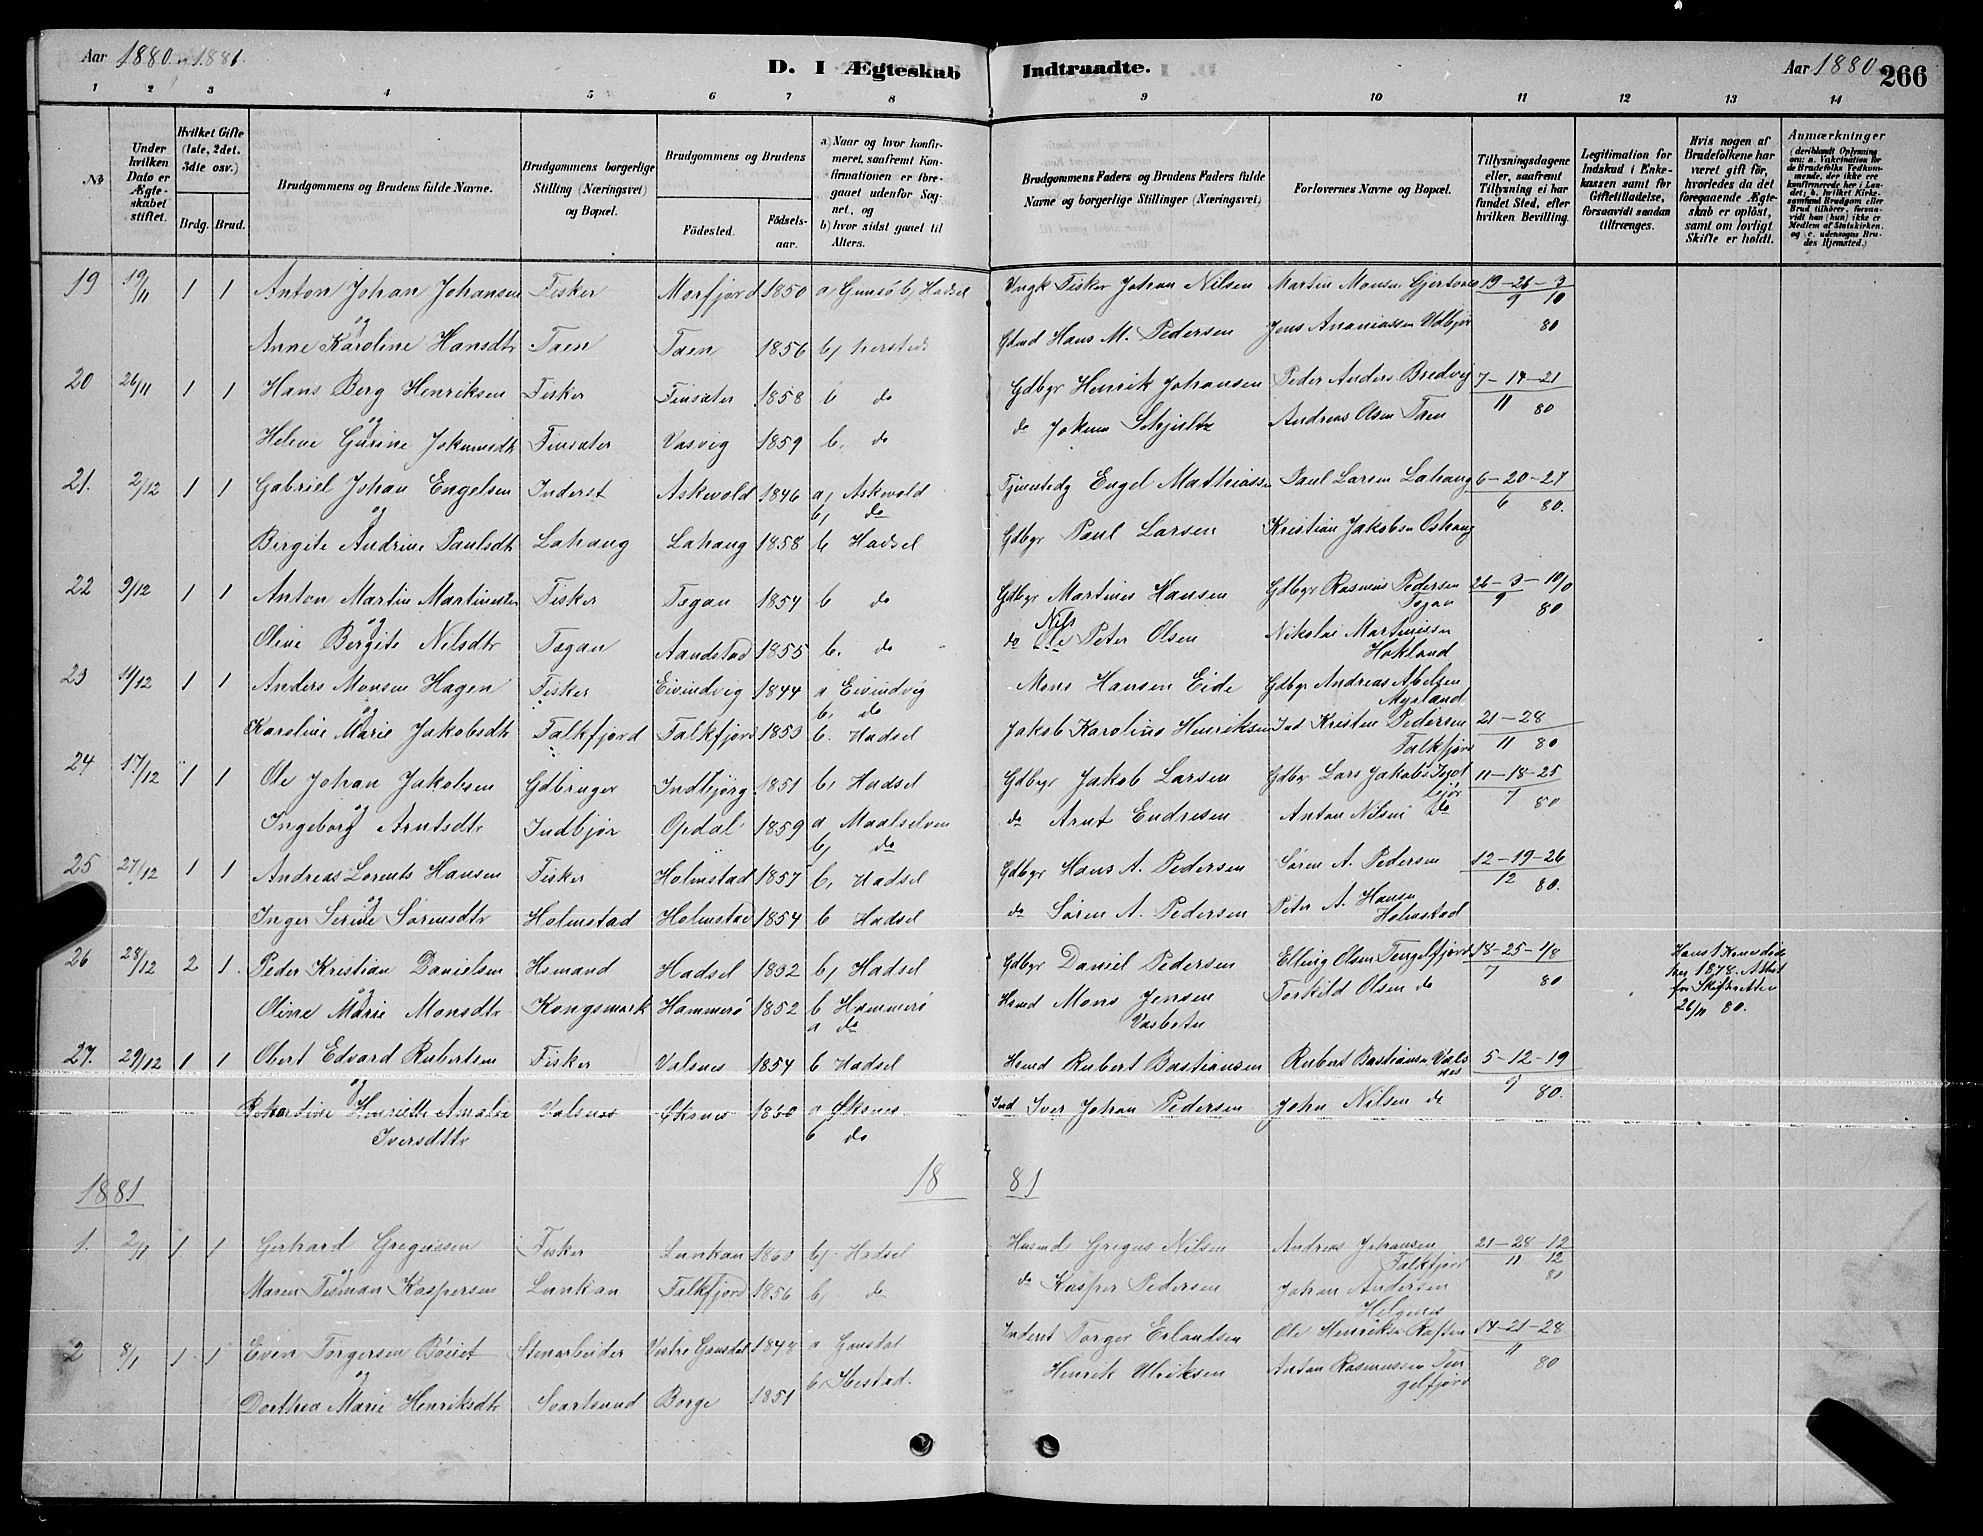 Aar 1880 og 1881.
D. I Ægteskab Indtraadte.
Aar 1880
266
1 2 3 4 5 6 7 8 9 10 11 12 13 14
No
Under hvilken Dato er Ægteskabet stiftet.
Hvilket Gifte (1ste, 2det, 3die osv.)
Brdg. Brud.
Brudgommens og Brudens fulde Navne.
Brudgommens borgerlige Stilling (Næringsvei) og Bopæl.
Brudgommens og Brudens
Fødested. Fødselsaar.
a) Naar og hvor konfirmeret, saafremt Konfirmationen er foregaaet udenfor Sognet, og
b) hvor sidst gaaet til Alters.
Brudgommens Faders og Brudens Faders fulde Navne og borgerlige Stillinger (Næringsvei)
Forlovernes Navne og Bopæl.
Tillysningsdagene eller, saafremt Tillysning ei har fundet Sted, efter hvilken Bevilling.
Legitimation for Indskud i Enkekassen samt for Giftetilladelse, forsaavidt saadan tiltrænges.
Hvis nogen af Brudefolkene har været gift før, hvorledes da det foregaaende Ægteskab er opløst, samt om lovligt Skifte er holdt.
Anmærkninger
19 19/11 1 1 Anton Johan Johansen Fisker Morfjord 1850 a b, Hadsel Fisker Johan Nilsen Martin Monsen 19-26-3
9 10
og
Anne Karoline Hansdtr Taen Taen 1856 b, Hans M. Pedersen Jens Ananiassen Udbjør 80
20 26/11 1 1 Hans Berg Henriksen Fisker Finsæter 1858 b do Gdbgr Henrik Johansen Peder Anders Bredvig 7-14-21
11 80
og
Helene Gurine Finsæter Vasvig 1859 b, do do Jokum Schjultz Andreas Olsen Taen
21. 2/12 1 1 Gabriel Johan Engelsen Inderst Askevold 1846 a, Askevold Engel Mathiassen Paul Larsen Lahaug 6-20-27
b, do 6 80.
og
Bergite Andrine Paulsdtr Lahaug Lahaug 1858 b Hadsel Gdbgr Paul Larsen Kristian Jakobsen
22 9/12 1 1 Anton Martin Martinussen Fisker Tøgan 1854 b do Gdbgr Martines Hansen Gdbgr Rasmus Pedersen 26-3-10/10
Nils 9
og 80
Oline Bergite Nilsdtr Tøgan Aandstad 1855 b. do do Ole Peter Olsen Nikolai Martinussen
Hokland
23 11/12 1 1 Anders Monsen Hagen Fisker Eivindvig 1844 a Eivindvig Mons Hansen Eide Gdbgr Andreas Abelsen
b, do Myrland
og
Karoline Marie Jakobsdtr Falkfjord Falkfjord 1853 b. Hadsel Jakob Karolius Henriksen Ind Kristen Pedersen 21-28
Falkfjord 11 80
24 17/12 1 1 Ole Johan Jakobsen Gdbruger Indbjørg 1851 b, Hadsel Gdbgr Jakob Larsen Gdbgr Lars Jakobs 11-18-25
7 80
og
Ingeborg Arntsdtr Indbjør Opdal 1859 a Maalselven do Arnt Endresen Anton Nilsen do
b, do
25 27/12 1 1 Andreas Lorents Hansen Fisker Holmstad 1857 b, Hadsel Gdbgr Hans A. Pedersen Søren A. Pedersen 12-19-26
12 80.
og
Inger Serine Sørensdtr Holmstad Holmstad 1854 b Hadsel do Søren A. Pedersen Peter A. Hansen
Holmstad
26 28/12 2 1 Peder Kristian Danielsen Hsmand Hadsel 1832 b, Hadsel Gdbgr Daniel Pedersen Elling Olsen Tengelfjord 18-25-1/8
7 80
Hans 1 Kone døde
1878. Attest
for Skifteretten
26/11 80.
og
Oline Marie Monsdtr Kongsmark Hammerø 1852 b Hammerø Hsmd Mons Jensen Torkild Olsen do
a do
27. 29/12 1 1 Obert Edvard Rubertsen Fisker Valsnes 1854 b Hadsel Hsmd Rubert Bastiansen Rubert Bastiansen Valsnes 5-12-19
9 80.
og
Henriette Amalie Valsnes Øksnes 1860 a Øksnes Ind Iver Johan Pedersen John Nilsen do
Iversdttr b do
1881 18 81
1. 2/1 1 1 Gerhard Gregusen Fisker Lunkan 1860 b, Hadsel Husmd Gregus Nilsen Andreas Johansen 21-28-12
Falkfjord 11 12
80
og
Maren Kaspersen Lunkan Falkfjord 1856 b, do do Kasper Pedersen Johan Andersen
Helgenes
2 8/1 1 1 Even Torgersen Bøiet Stenarbeider Vestre Gausdal 1848 a Gausdal Inderst Torger Erlandsen Ole Henriksen Raften 14-21-28
11 80
og
Dorthea Marie Henriksdtr Svartsund Borge 1851 Henrik Ulriksen Anton Rasmussen Tengelfjord